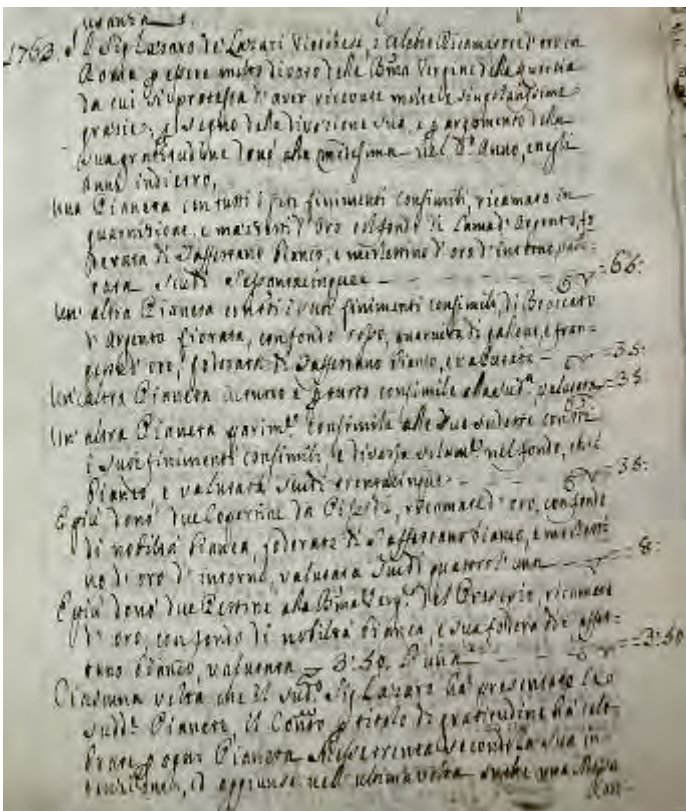 usanza
1763. Il Sig. Lazaro de Lazari Viterbese, e celebre Ricamatore d'oro in
Roma p essere molto divoto della Bma Vergine della Quercia
da cui si protesta d'aver ricevute molte e singolarissime
grazie; p segno della divozione sua, e p argomento della
sua gratitudine donò alla medesima nel dº Anno, e negli
anni indietro,
Una Pianeta con tutti i suoi finimenti consimili, ricamata in
guarnizione, e mazzetti d'oro col fondo di Lama d'Argento, fo
derata di Taffettano bianco, e merlettino d'oro d'intorno,
rata scudi sessantacinque - - - - 65:
Un'altra Pianeta con tti i suoi finimenti consimili, di Broccato
d'Argento fiorata, con fondo rosso, guarnita di galloni, e fran-
d'oro, foderata di Taffettano bianco, e valutata - 35:
Un'altra Pianeta in tutto e p tutto consimile alla sudª valutata 35:
Un'altra Pianeta parimte consimile alle due sudette con tti
i suoi finimenti consimili e diversa solamte nel fondo, ch'è
bianco, e valutata scudi trentacinque - - - 35:
E più donò due Copertine da Pisside, ricamate d'oro, con fondo
di nobiltà bianca, foderate di Taffettano bianco, e merletti
no d'oro d'intorno, valutata scudi quattro l'una - 8:
E più donò due Vestine alla Bma Vergª del Presepio, ricamate
d'oro, con fondo di nobiltà bianca, e sua fodera di taffet=
tano bianco, valutata 3:50. l'una - - 3:50
Ciascuna volta che il sudº Sig. Lazaro ha presentato le
sudde Pianete, il Conto p titolo di gratitudine ha cele
brate p ogni Pianeta Messe trenta secondo la sua in
tenzione, ed aggiunse nell'ultima volta anche una Messa